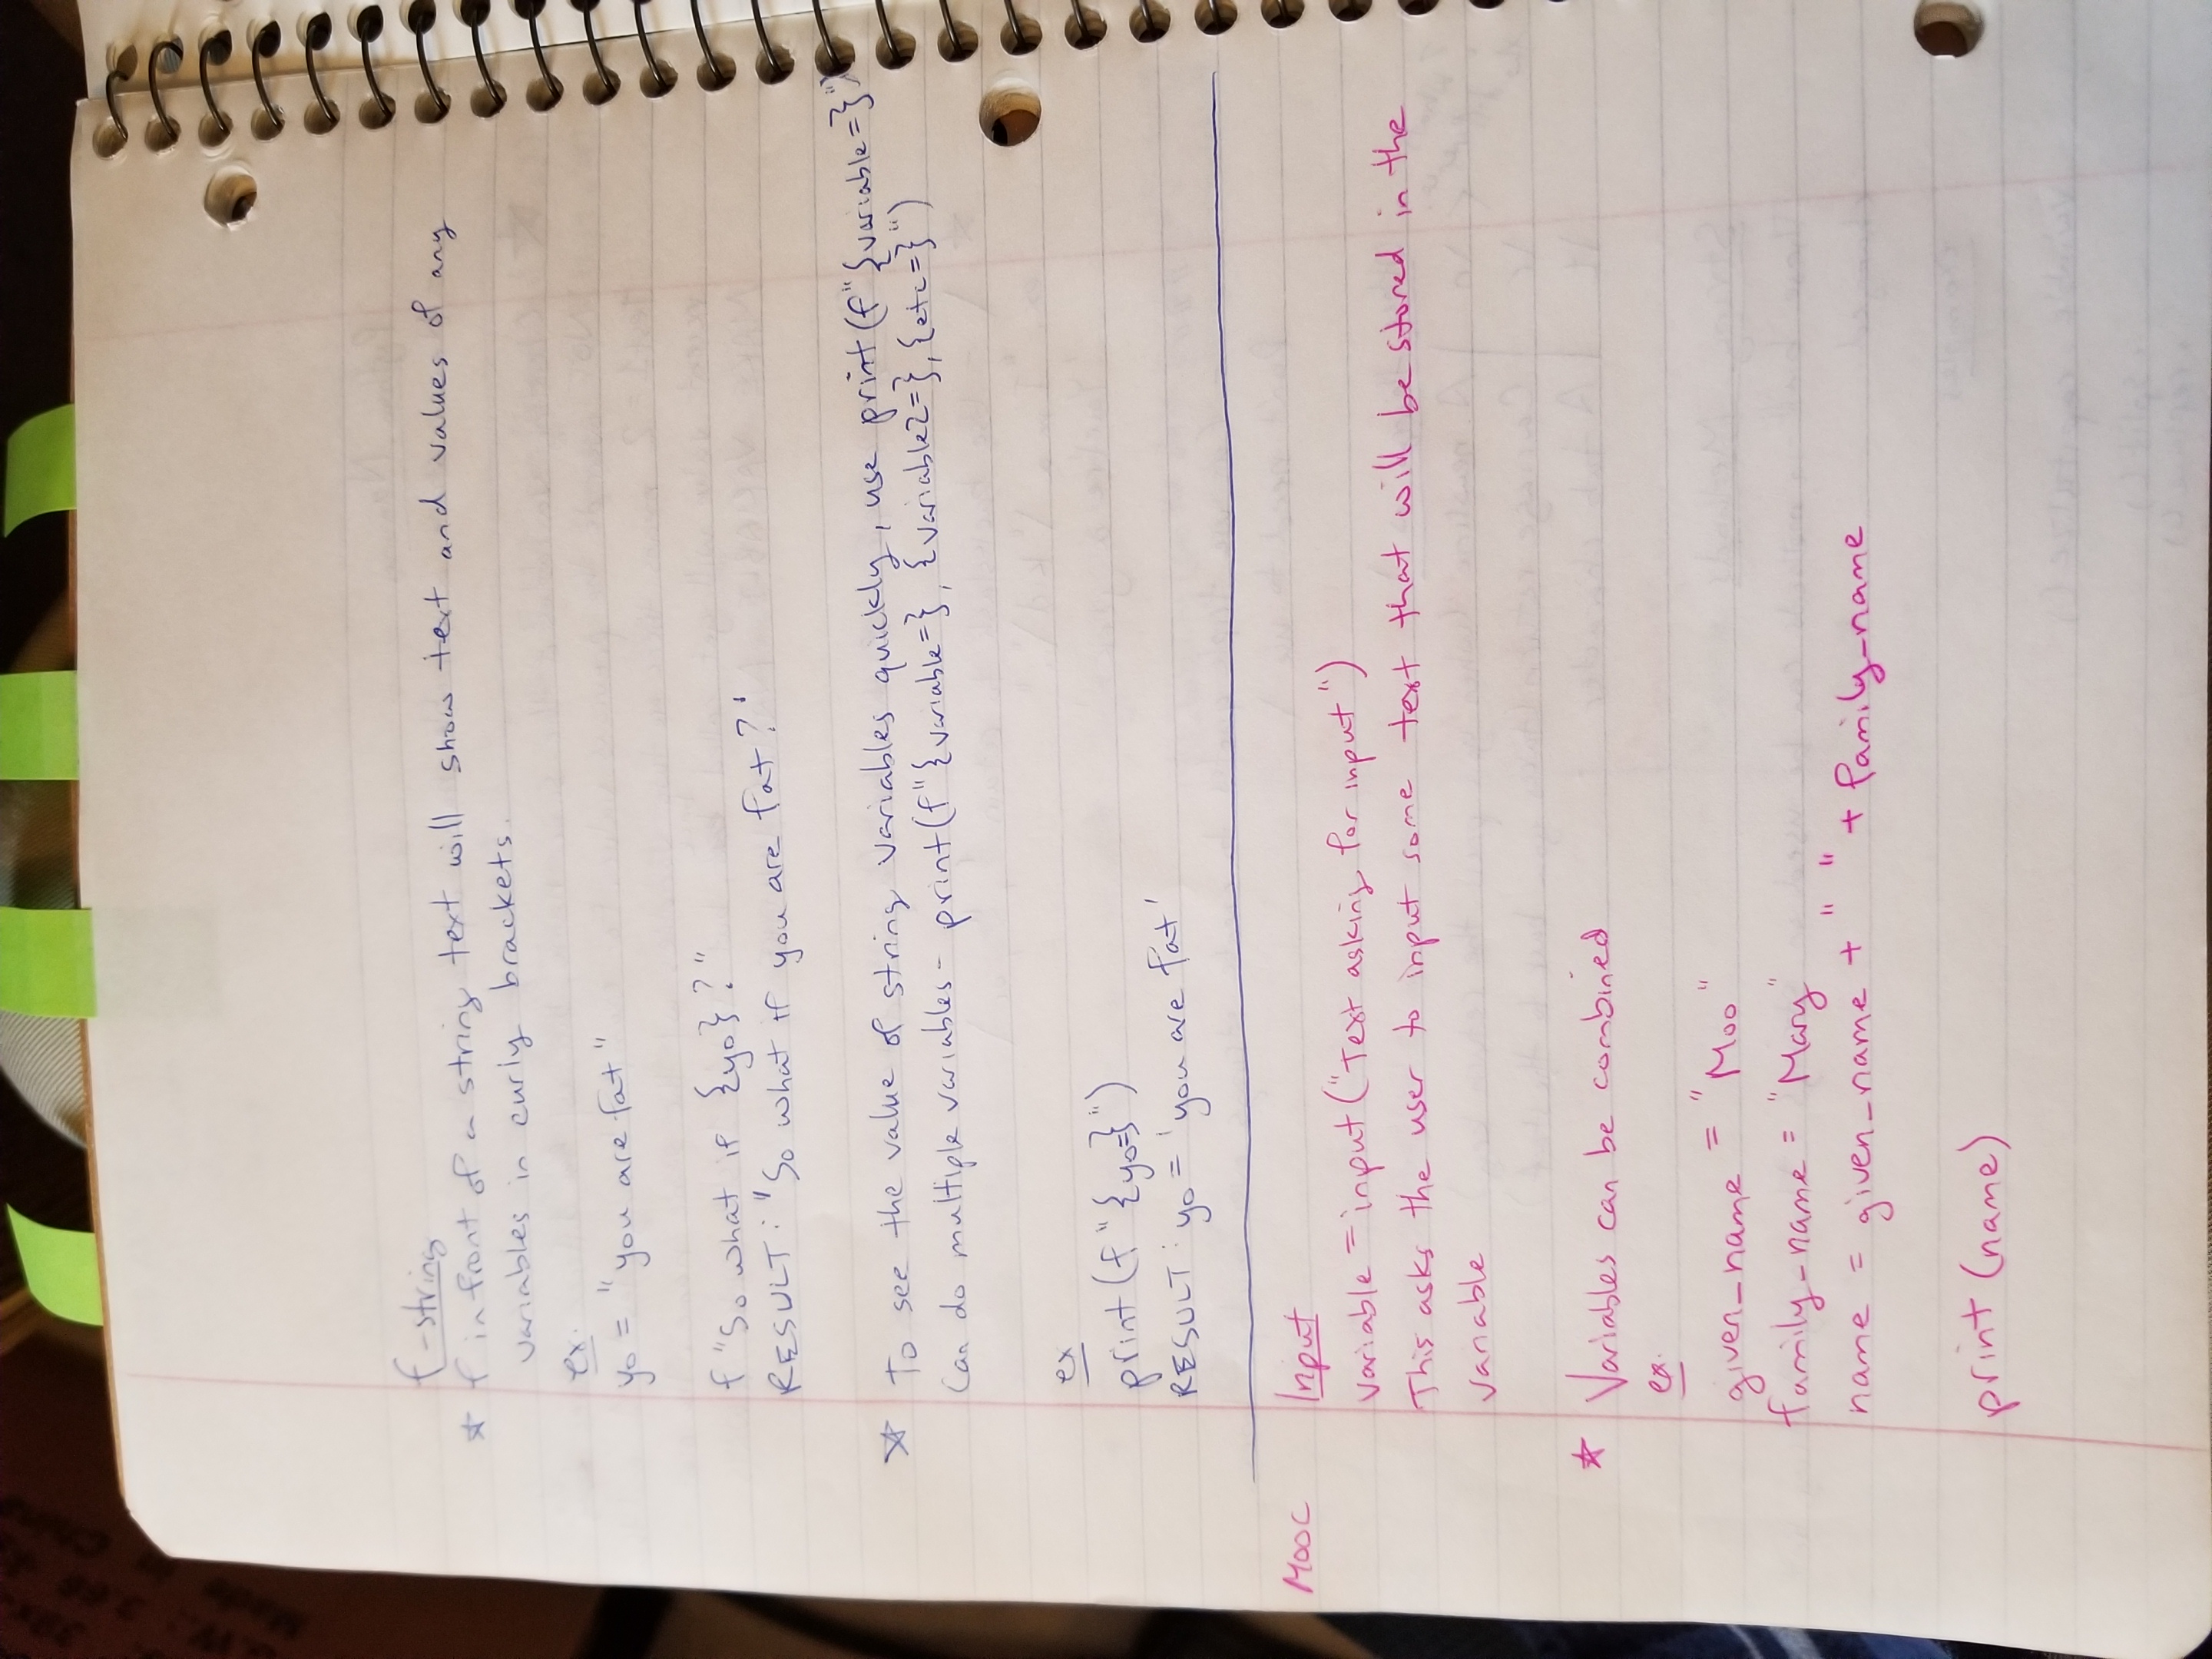 f-string
☆ f in front of a string text will show text and values of any
variables in curly brackets.
ex.
yo = "you are fat"
f "So what if {yo}?"
RESULT: "So what if you are fat?'
☆ To see the value of string variables quickly, use print(f"{variable=}")
Can do multiple variables - print(f"{variable=}, {variable2=}, {etc=}")
ex
print(f"{yo=}")
RESULT: yo = 'you are fat'
MOOC Input
variable = input("Text asking for input")
This asks the user to input some text that will be stored in the
variable
☆ Variables can be combined
ex.
given_name = "Moo"
family_name = "Mary"
name = given_name + " " + family_name
print (name)